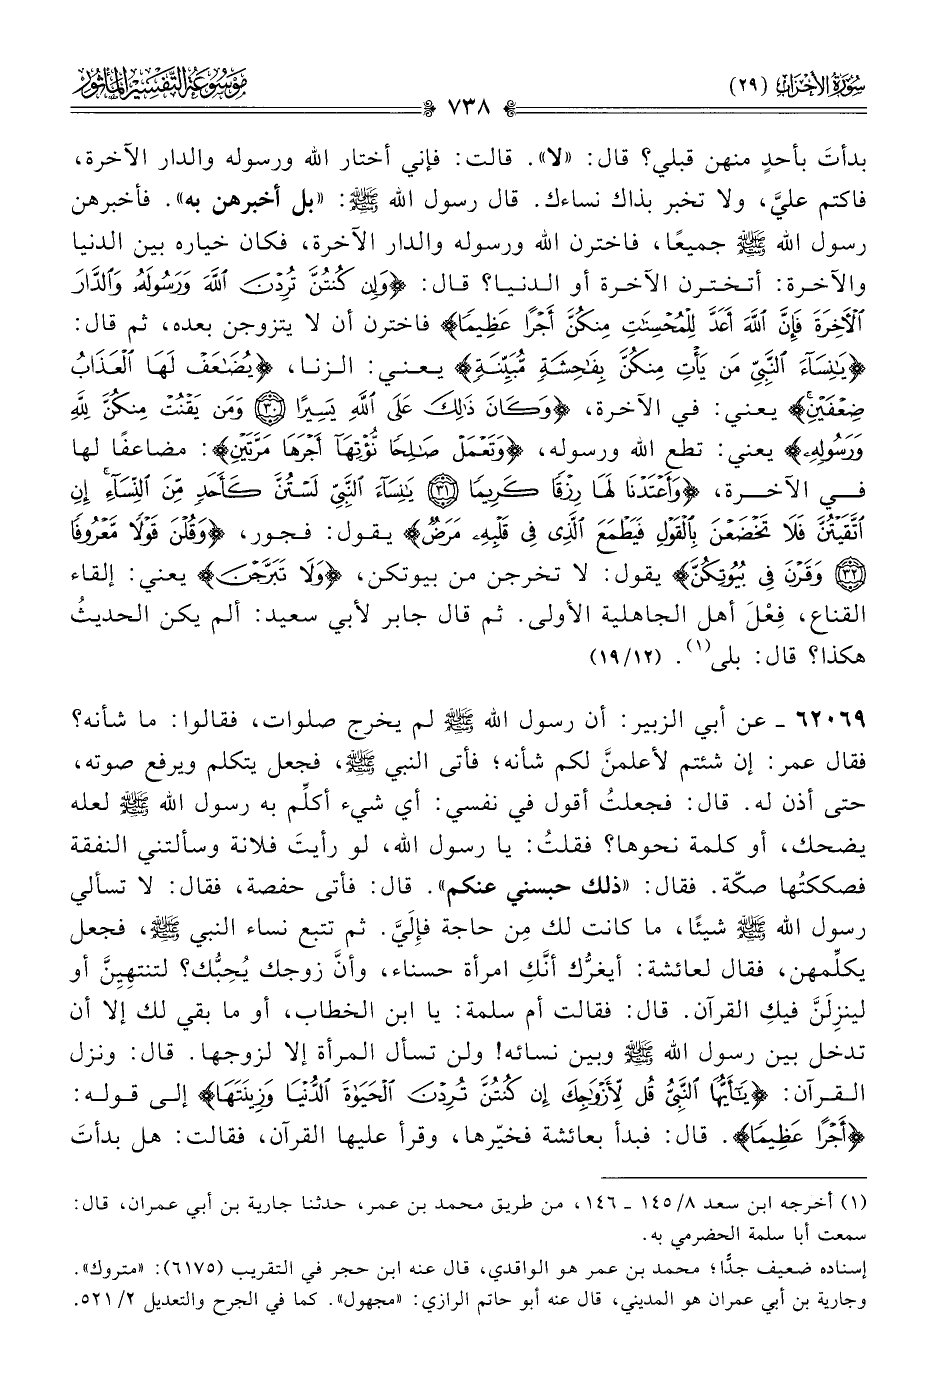 سُورَةُ الأَحْزَاب (٢٩)
٧٣٨
مَوْسُوعَةُ التَّفْسِيرِ المَأْثُور
بدأتَ بأحدٍ منهن قبلي؟ قال: «لا». قالت: فإني أختار الله ورسوله والدار الآخرة،
فاكتم عليَّ، ولا تخبر بذاك نساءك. قال رسول الله ﷺ: «بل أخبرهن به». فأخبرهن
رسول الله ﷺ جميعًا، فاخترن الله ورسوله والدار الآخرة، فكان خياره بين الدنيا
والآخرة: أتخترن الآخرة أو الدنيا؟ قال: ﴿وَإِن كُنتُنَّ تُرِدْنَ ٱللَّهَ وَرَسُولَهُۥ وَٱلدَّارَ
ٱلْأٓخِرَةَ فَإِنَّ ٱللَّهَ أَعَدَّ لِلْمُحْسِنَٰتِ مِنكُنَّ أَجْرًا عَظِيمًا﴾ فاخترن أن لا يتزوجن بعده، ثم قال:
﴿يَٰنِسَآءَ ٱلنَّبِيِّ مَن يَأْتِ مِنكُنَّ بِفَٰحِشَةٍ مُّبَيِّنَةٍ﴾ يعني: الزنا، ﴿يُضَٰعَفْ لَهَا ٱلْعَذَابُ
ضِعْفَيْنِ﴾ يعني: في الآخرة، ﴿وَكَانَ ذَٰلِكَ عَلَى ٱللَّهِ يَسِيرًا ٣٠ وَمَن يَقْنُتْ مِنكُنَّ لِلَّهِ
وَرَسُولِهِۦ﴾ يعني: تطع الله ورسوله، ﴿وَتَعْمَلْ صَٰلِحًا نُّؤْتِهَآ أَجْرَهَا مَرَّتَيْنِ﴾: مضاعفًا لها
في الآخرة، ﴿وَأَعْتَدْنَا لَهَا رِزْقًا كَرِيمًا ٣١ يَٰنِسَآءَ ٱلنَّبِيِّ لَسْتُنَّ كَأَحَدٍ مِّنَ ٱلنِّسَآءِ إِنِ
ٱتَّقَيْتُنَّ فَلَا تَخْضَعْنَ بِٱلْقَوْلِ فَيَطْمَعَ ٱلَّذِى فِى قَلْبِهِۦ مَرَضٌ﴾ يقول: فجور، ﴿وَقُلْنَ قَوْلًا مَّعْرُوفًا
٣٢ وَقَرْنَ فِى بُيُوتِكُنَّ﴾ يقول: لا تخرجن من بيوتكن، ﴿وَلَا تَبَرَّجْنَ﴾ يعني: إلقاء
القناع، فِعْلَ أهل الجاهلية الأولى. ثم قال جابر لأبي سعيد: ألم يكن الحديثُ
هكذا؟ قال: بلى(١). (١٩/١٢)
٦٢٠٦٩ ـ عن أبي الزبير: أن رسول الله ﷺ لم يخرج صلوات، فقالوا: ما شأنه؟
فقال عمر: إن شئتم لأعلمنَّ لكم شأنه؛ فأتى النبي ﷺ، فجعل يتكلم ويرفع صوته،
حتى أذن له. قال: فجعلتُ أقول في نفسي: أي شيء أكلِّم به رسول الله ﷺ لعله
يضحك، أو كلمة نحوها؟ فقلتُ: يا رسول الله، لو رأيتَ فلانة وسألتني النفقة
فصككتُها صكّة. فقال: «ذلك حبسني عنكم». قال: فأتى حفصة، فقال: لا تسألي
رسول الله ﷺ شيئًا، ما كانت لك مِن حاجة فإلَيَّ. ثم تتبع نساء النبي ﷺ، فجعل
يكلِّمهن، فقال لعائشة: أيغرُّك أنَّكِ امرأة حسناء، وأنَّ زوجك يُحِبُّك؟ لتنتهِينَّ أو
لينزِلَنَّ فيكِ القرآن. قال: فقالت أم سلمة: يا ابن الخطاب، أو ما بقي لك إلا أن
تدخل بين رسول الله ﷺ وبين نسائه! ولن تسأل المرأة إلا لزوجها. قال: ونزل
القرآن: ﴿يَٰٓأَيُّهَا ٱلنَّبِىُّ قُل لِّأَزْوَٰجِكَ إِن كُنتُنَّ تُرِدْنَ ٱلْحَيَوٰةَ ٱلدُّنْيَا وَزِينَتَهَا﴾ إلى قوله:
﴿أَجْرًا عَظِيمًا﴾. قال: فبدأ بعائشة فخيّرها، وقرأ عليها القرآن، فقالت: هل بدأتَ
(١) أخرجه ابن سعد ٨/ ١٤٥ ـ ١٤٦، من طريق محمد بن عمر، حدثنا جارية بن أبي عمران، قال:
سمعت أبا سلمة الحضرمي به.
إسناده ضعيف جدًّا؛ محمد بن عمر هو الواقدي، قال عنه ابن حجر في التقريب (٦١٧٥): «متروك».
وجارية بن أبي عمران هو المديني، قال عنه أبو حاتم الرازي: «مجهول». كما في الجرح والتعديل ٢/ ٥٢١.